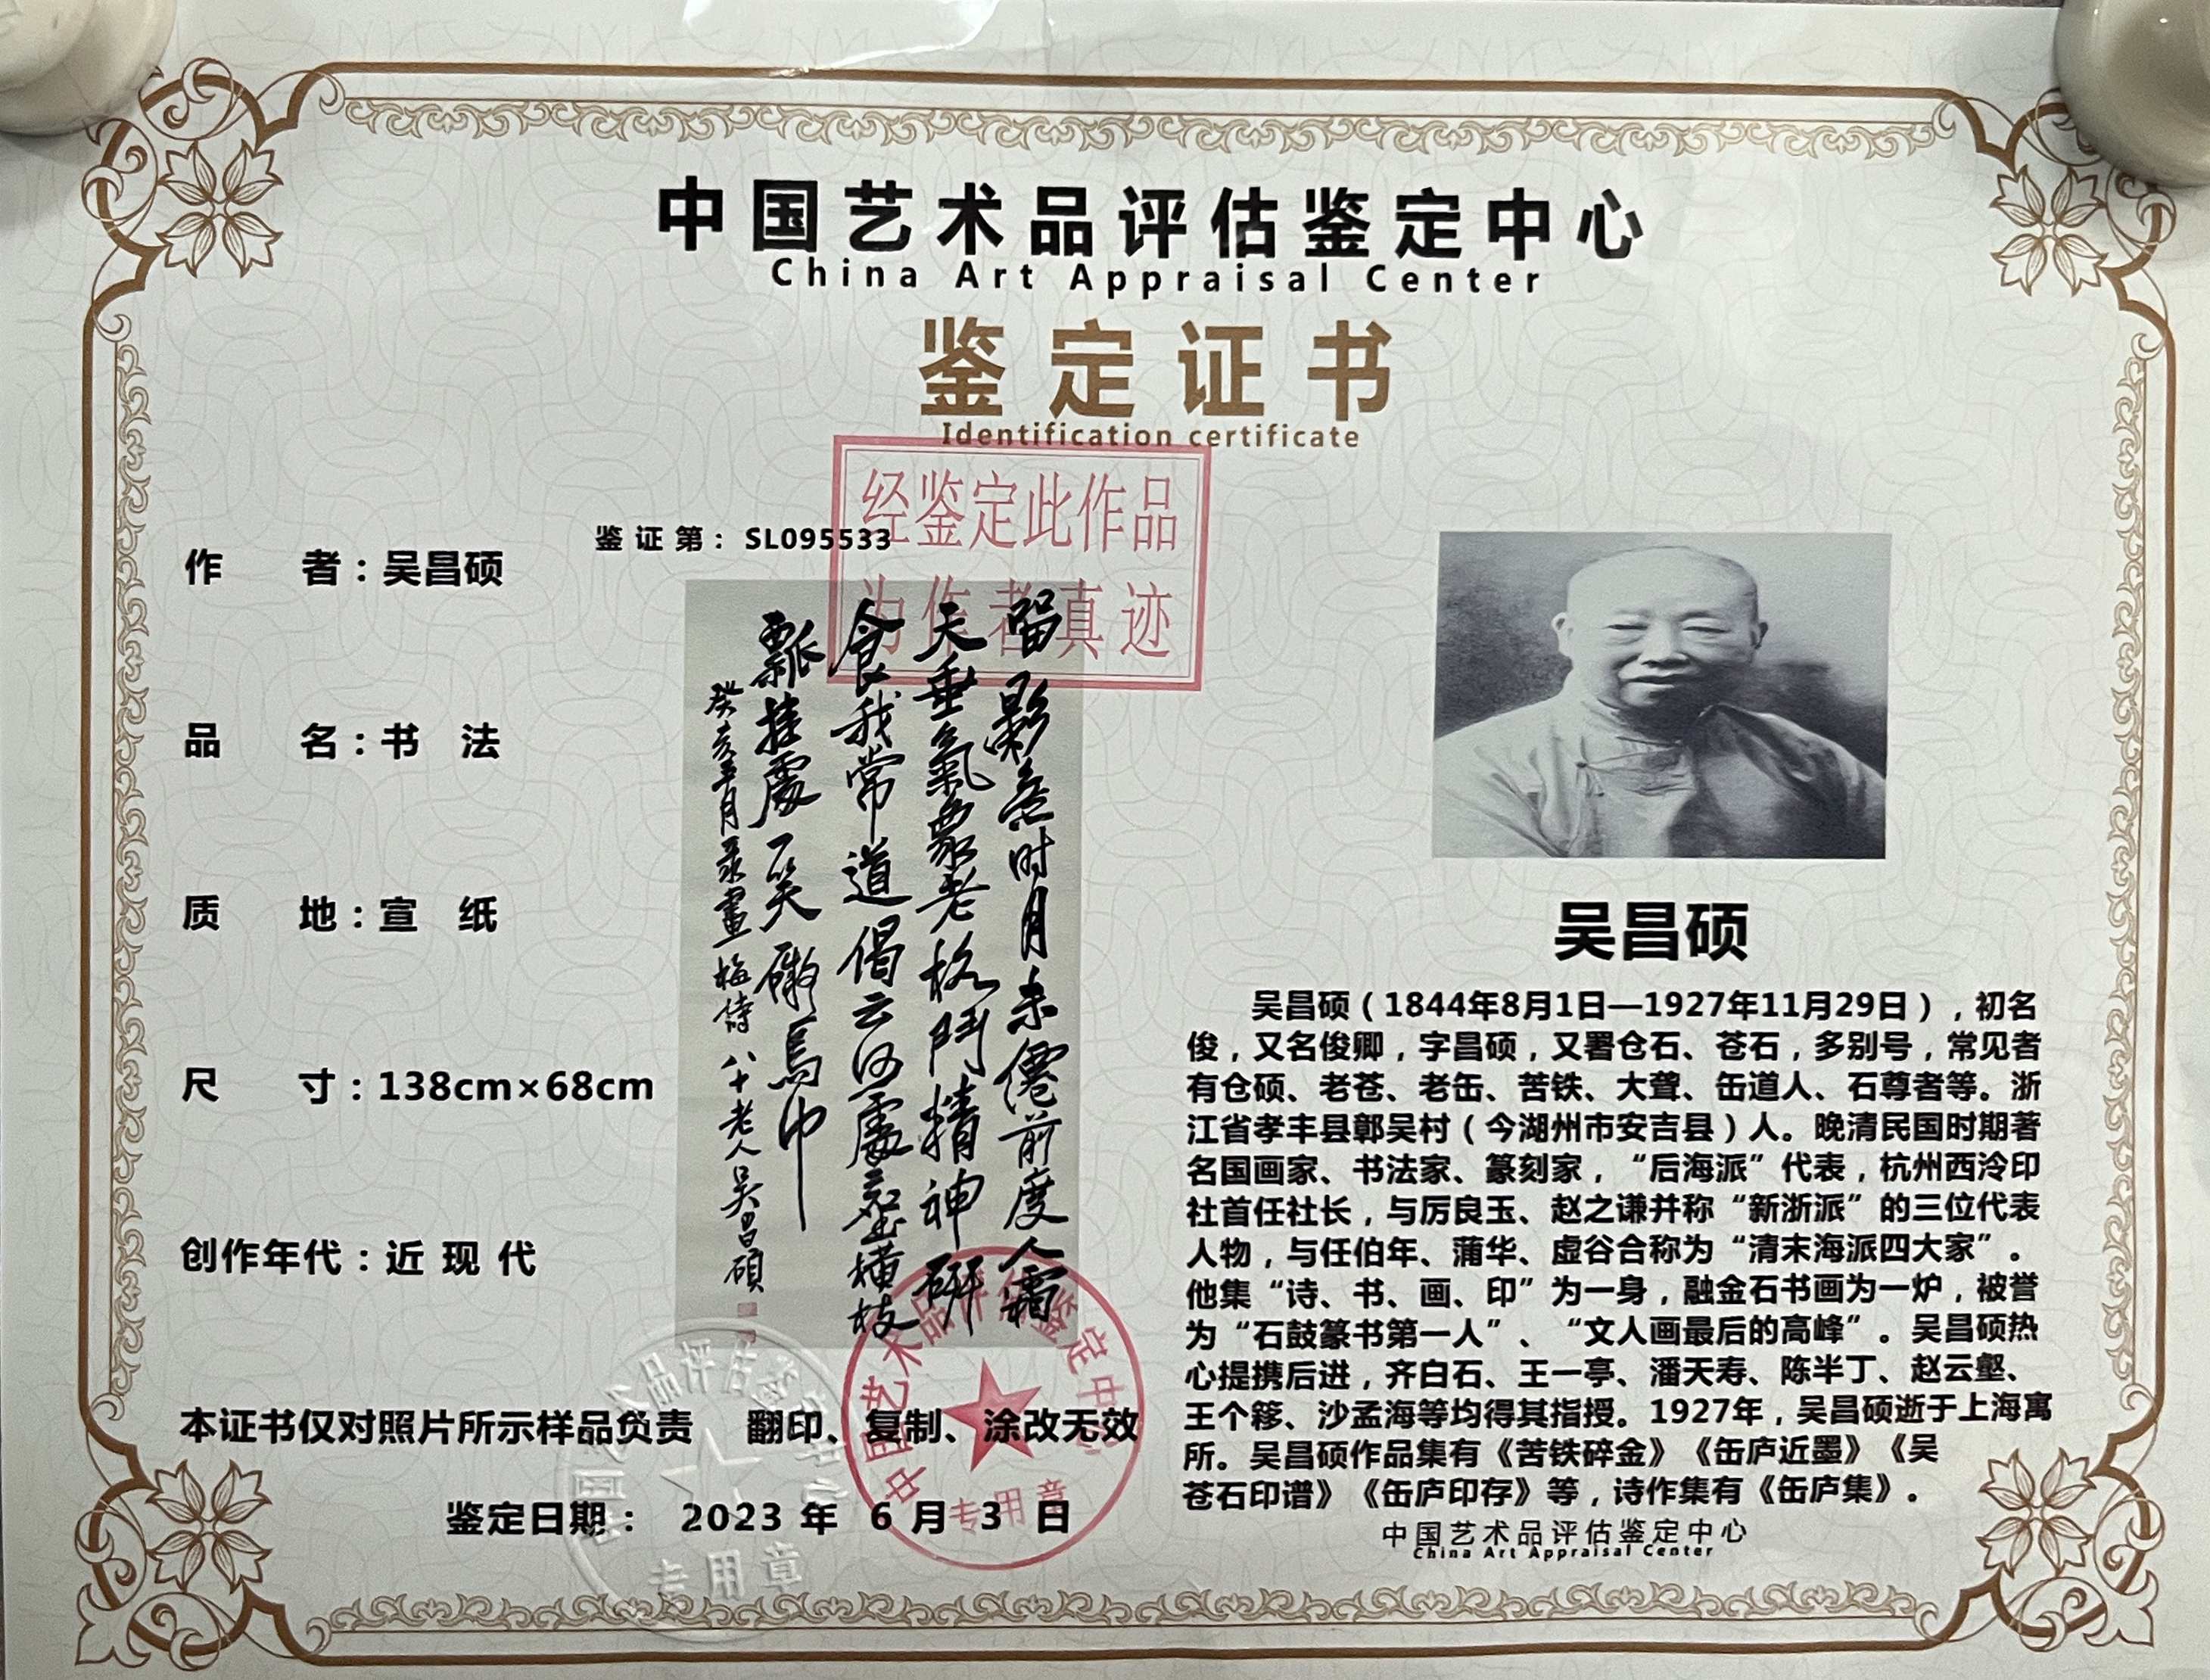 中国艺术品评估鉴定中心
China Art Appraisal Center
鉴定证书
Identification certificate
经鉴定此作品
为作者真迹
鉴证第：SL095533
作者：吴昌硕
品名：书法
质地：宣纸
尺寸：138cm×68cm
创作年代：近现代
留影无时月未僊前度人霜
天垂气象老格斗精神研
食我常道偈云何处尘横枝
瓢挂处一笑 乌巾
癸亥 月录画梅诗 八十老人吴昌硕
吴昌硕
吴昌硕（1844年8月1日—1927年11月29日），初名
俊，又名俊卿，字昌硕，又署仓石、苍石，多别号，常见者
有仓硕、老苍、老缶、苦铁、大聋、缶道人、石尊者等。浙
江省孝丰县鄣吴村（今湖州市安吉县）人。晚清民国时期著
名国画家、书法家、篆刻家，“后海派”代表，杭州西泠印
社首任社长，与厉良玉、赵之谦并称“新浙派”的三位代表
人物，与任伯年、蒲华、虚谷合称为“清末海派四大家”。
他集“诗、书、画、印”为一身，融金石书画为一炉，被誉
为“石鼓篆书第一人”、“文人画最后的高峰”。吴昌硕热
心提携后进，齐白石、王一亭、潘天寿、陈半丁、赵云壑、
王个簃、沙孟海等均得其指授。1927年，吴昌硕逝于上海寓
所。吴昌硕作品集有《苦铁碎金》《缶庐近墨》《吴
苍石印谱》《缶庐印存》等，诗作集有《缶庐集》。
中国艺术品评估鉴定中心
China Art Appraisal Center
本证书仅对照片所示样品负责 翻印、复制、涂改无效
鉴定日期：2023年6月3日
中国艺术品评估鉴定中心
专用章
中国艺术品评估鉴定中心
专用章